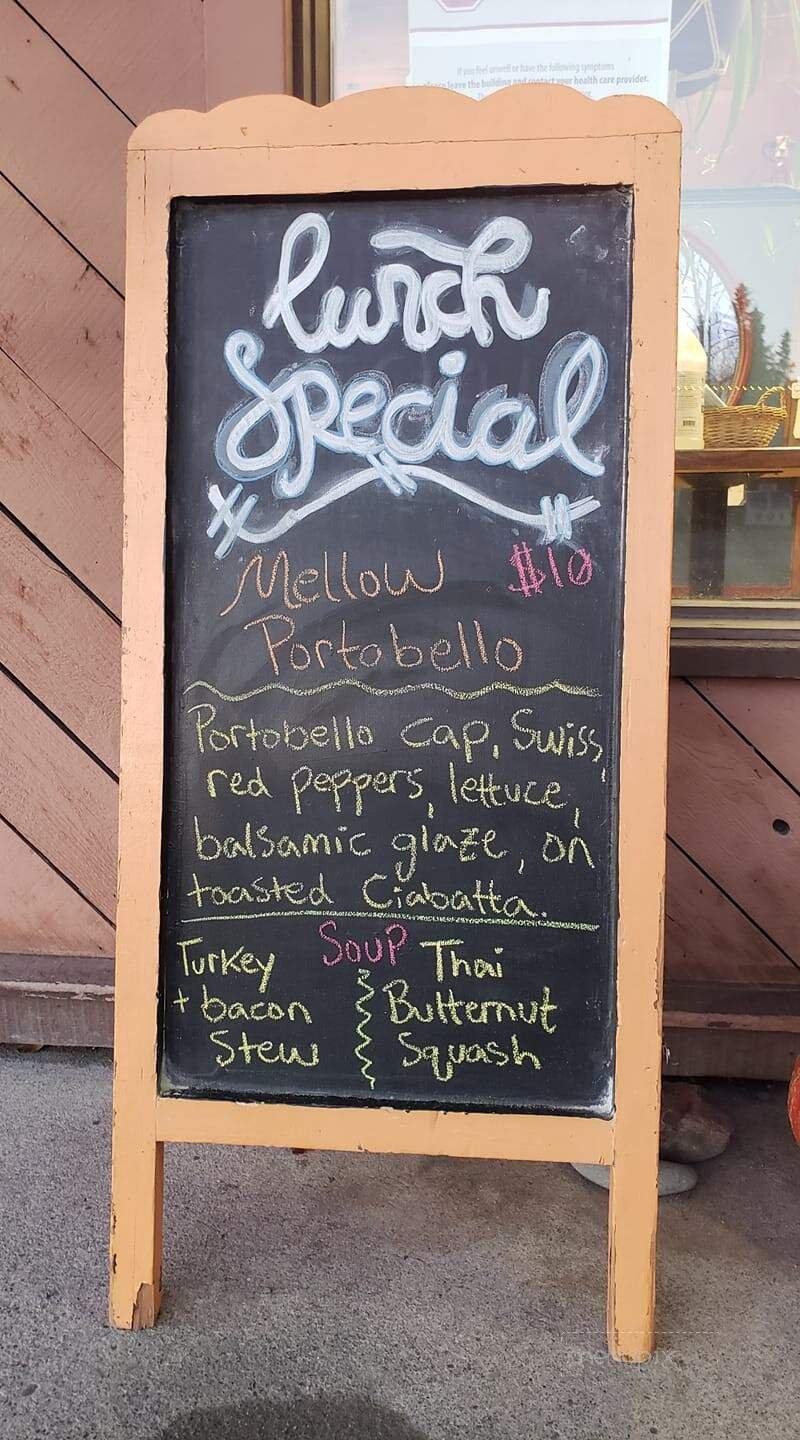 If you feel unwell or have the following symptoms
please leave the building and contact your health care provider.
lunch
Special
Mellow $10
Portobello
Portobello cap, Swiss,
red peppers, lettuce,
balsamic glaze, on
toasted Ciabatta.
Soup
Turkey
+ bacon
Stew
Thai
Butternut
Squash